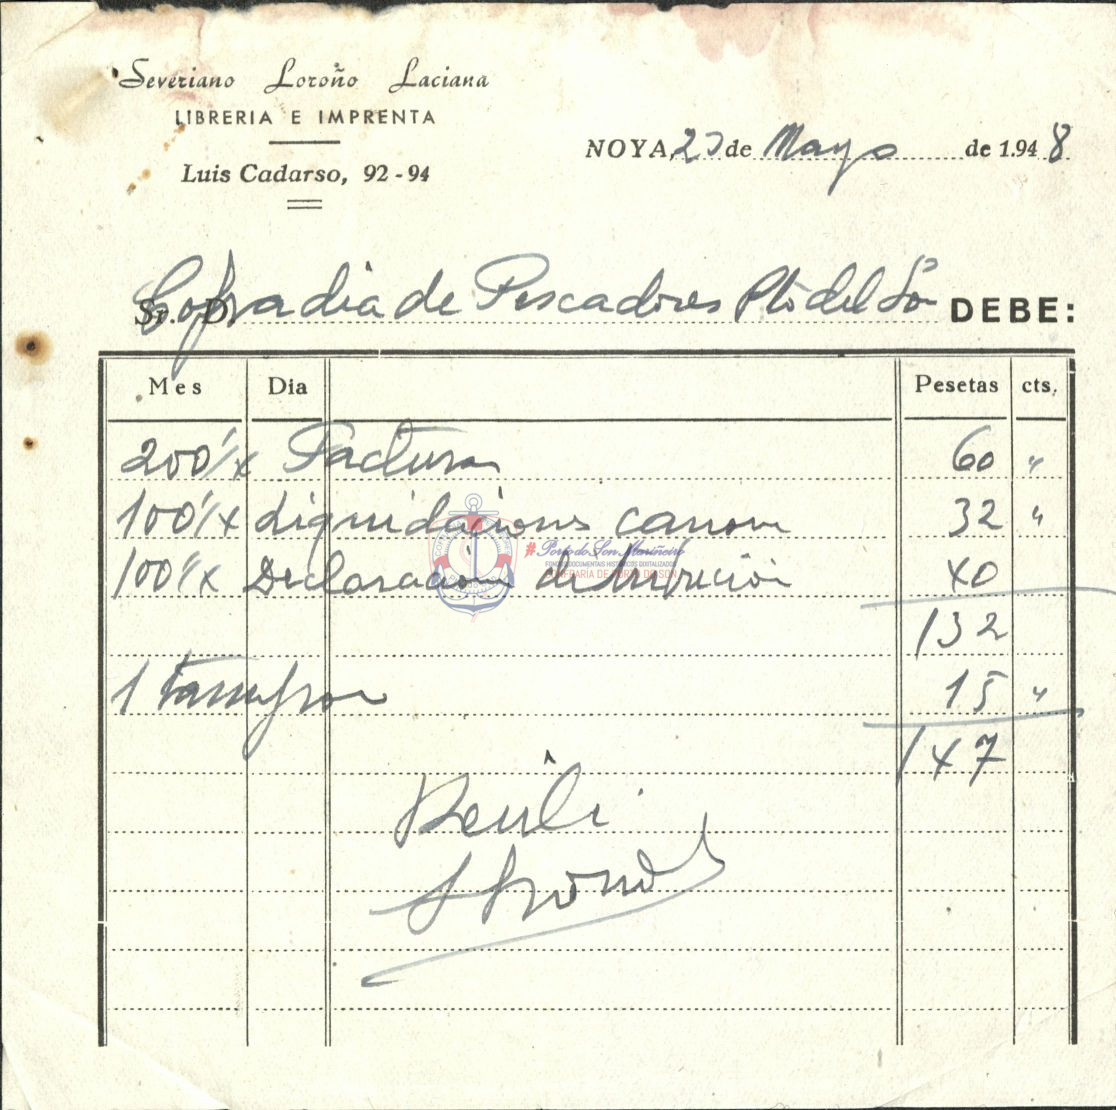 Severiano Loroño Laciana
LIBRERIA E IMPRENTA
Luis Cadarso, 92-94
NOYA, de Mayo de 1.948
Sr. D.
Cofradia de Pescadores Pto del Son DEBE:
Mes Dia Pesetas cts.
200 Facturas 60 "
100 Liquidaciones canon 32 "
#PortodoSonMariñeiro
FONDOS DOCUMENTAIS HISTÓRICOS DIXITALIZADOS
COFRARÍA DE PORTO DO SON
100 Declaracion de 40
132
1 tampon 15 "
147
Recibi